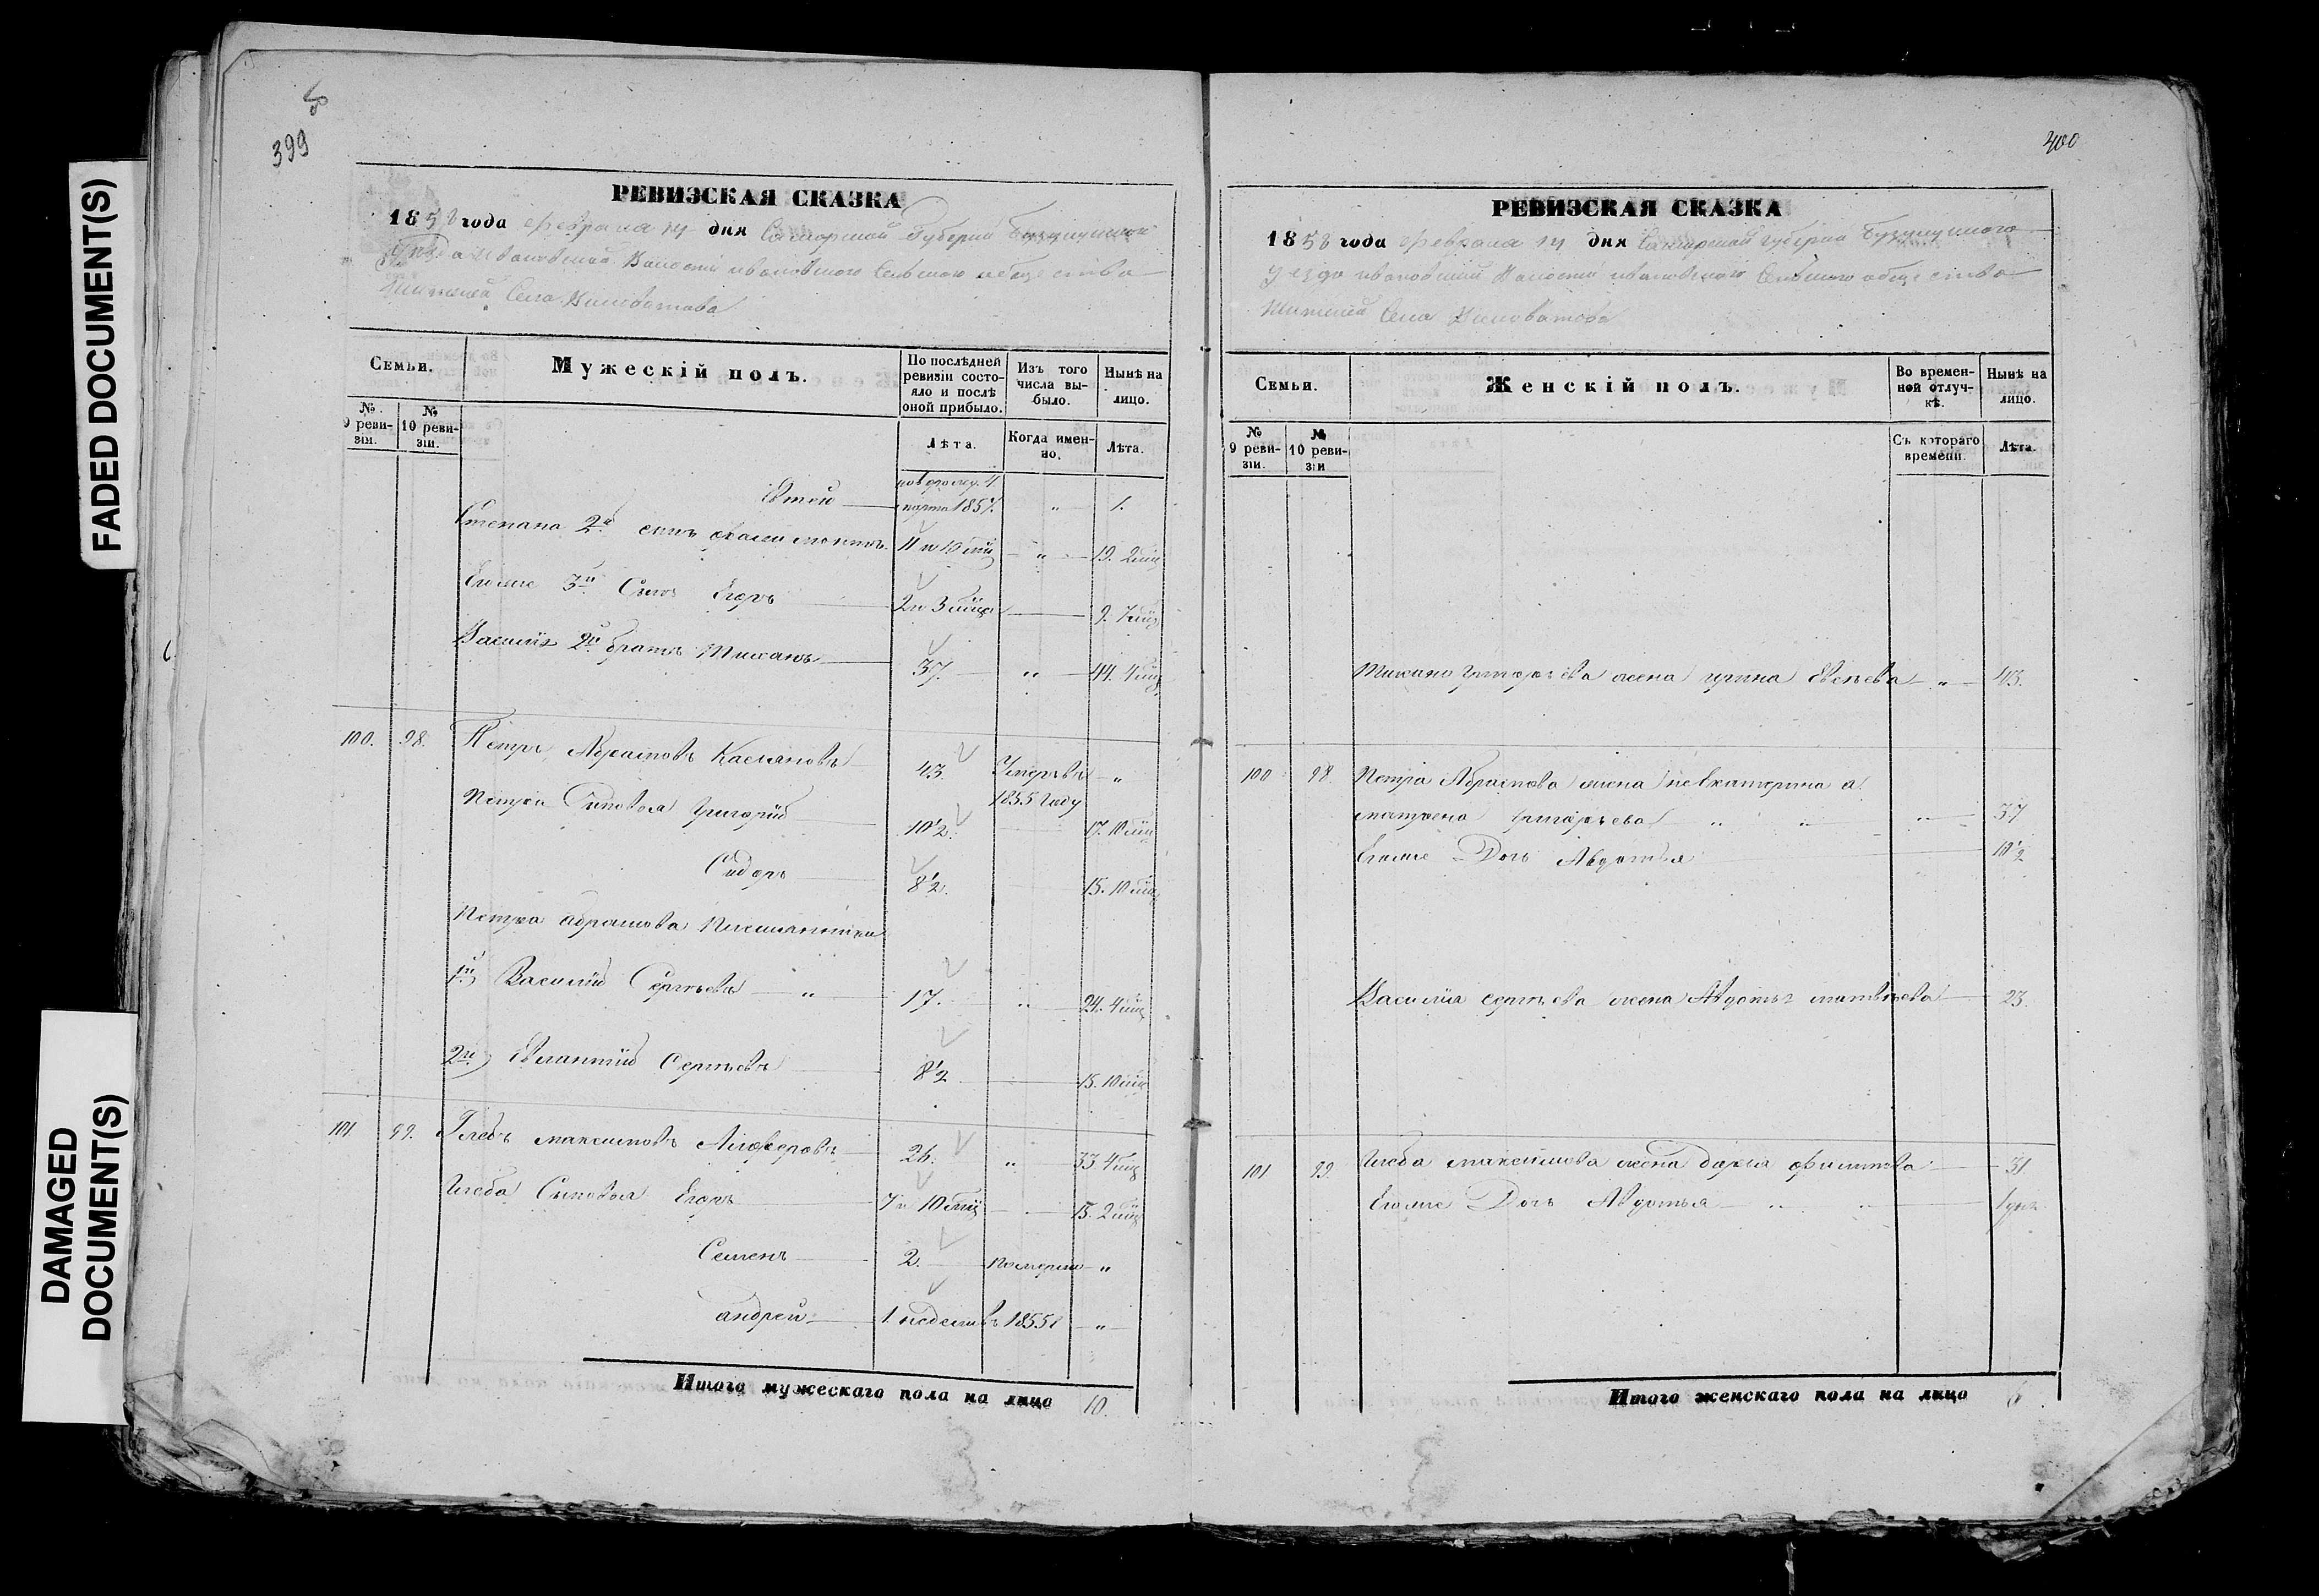 FADED DOCUMENT(S)
DAMAGED
DOCUMENT(S)
399
РЕВИЗСКАЯ СКАЗКА
1858 года февраля 14 дня Самарской Губернии Бузулукскаго
уезда Ивановской Волости ивановского Сельскаго общества
жителей Села Виловатова
Семьи.
Мужескій полъ.
По послѣдней
ревизіи состо-
яло и послѣ
оной прибыло.
Изъ того
числа вы-
было.
Нынѣ на
лицо.
№
9 реви-
зіи.
№
10 реви-
зіи.
Лѣта.
Когда имен-
но.
Лѣта.
марта 1857. „ 1.
Степана 2й сынъ 11 и 10 мцъ „ 19. 2 мцъ
Еюже 3й Сынъ Егоръ 2 и 3 мцъ 9. 7 мцъ
Василья 2й братъ Тиханъ 37. „ 44. 4 мцъ
100. 98. Петръ Абрамовъ Касьяновъ 43. Умеръ въ „
1855 году
Петра Сыновья Григорій 10½. 17. 10 мцъ
Сидоръ 8½. 15. 10 мцъ
Петра абрамова племянники
1й) Василій Сергеевъ „ 17. „ 24. 4 мцъ
2й) Сергеевъ 8½ 15. 10 мцъ
101 99. Глебъ максимовъ 26. „ 33. 4 мцъ
Глеба Сыновья Егоръ 7 и 10 мцъ 15. 2 мцъ
Семенъ 2. померли „
андрей 1 недели въ 1855 г „
Итого мужескаго пола на лицо 10.
400
РЕВИЗСКАЯ СКАЗКА
1858 года февраля 14 дня Самарской губернии Бузулукскаго
уезда ивановской Волости ивановского Сельскаго общества
жителей Села Виловатова
Семьи.
Женскій полъ.
Во времен-
ной отлуч-
кѣ.
Нынѣ на
лицо.
№
9 реви-
зіи.
№
10 реви-
зіи
Съ котораго
времени.
Лѣта.
Тихана Григорьева жена ирина „ 43.
100 98. Петра Абрамова жена не Екатерина а
матрена Григорьева „ „ „ 37
Егоже Дочь Авдотья 10½
Василья сергеева жена Авдотья матвеева 23.
101 99. Глеба максимова жена дарья филипова 31
Егоже Дочь Авдотья „ „
Итого женскаго пола на лицо 6